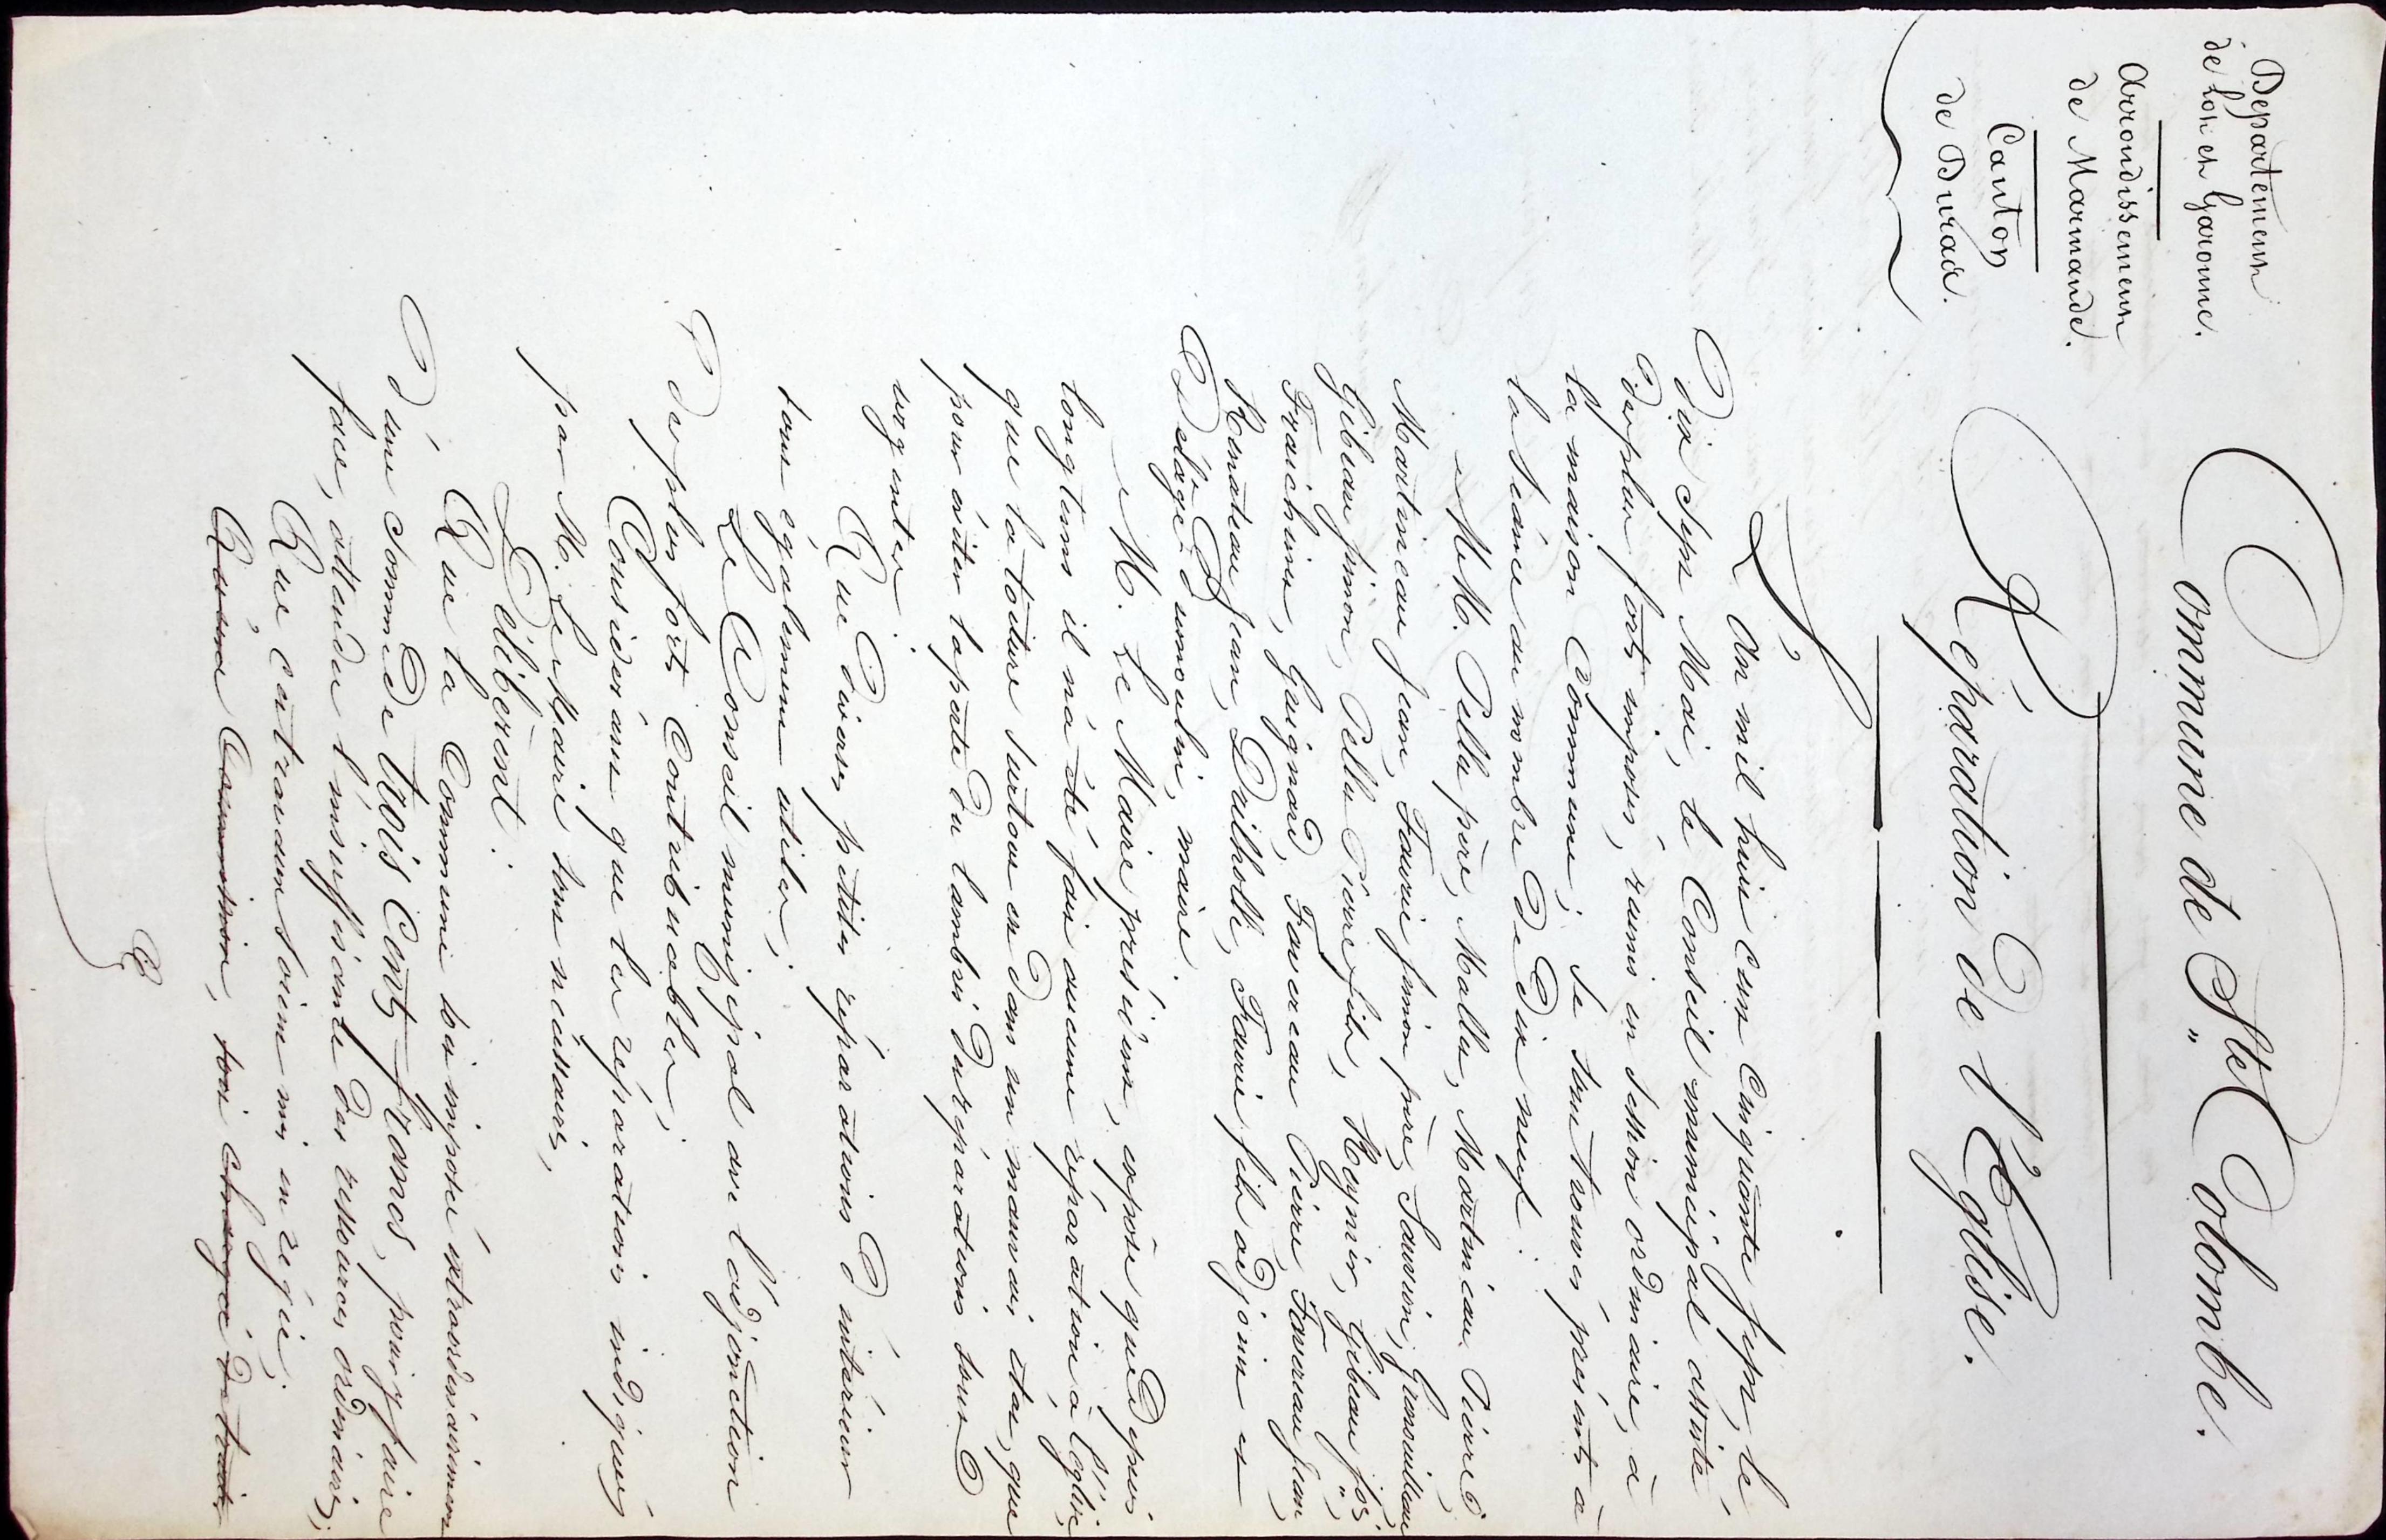 Département
de Lot et Garonne.
Arrondissement
de Marmande.
Canton
de Duras.
Commune de Ste. Colombe.
Réparation de l'Eglise.
L'An mil huit cent cinquante sept, le
Dix sept Mai, le Conseil municipal assisté
des plus forts imposés, réunis en session ordinaire, à
la maison Commune; se sont trouvés présents à
la séance au nombre de Dix neuf:
MM. Pella père, Malla, Martineau Pierre
Martineau Jean, Faurie Simon père, Sauvion,
Gibeau Simon, Pella Pierre fils, Reynier, Gibeau
Fraichine, Guignard, Favereau Pierre, Favereau Jean,
Renateau Jean, Dailholle, Faurie fils adjoint et
Delage Dumoulin, maire.
M. Le Maire président, expose que Depuis
longtems il n'a été fait aucune réparation à l'église,
que la toiture surtout est Dans un mauvais état, que
pour éviter la perte Du lambris Des réparations sont
urgentes.
Que Diverses petites réparations D'intérieur
sont également utiles;
Le Conseil municipal avec l'adjonction
Des plus forts Contribuables;
Considérant que les réparations indiqués
par M. Le Maire sont nécessaires,
Délibèrent:
Que la Commune soit imposée extraordinairement
D'une somme De trois cents francs, pour y faire
face, attendu l'insuffisance Des ressources ordinaires;
Que ces travaux soient mis en régie;
Qu'une Commission, soit chargée De toute